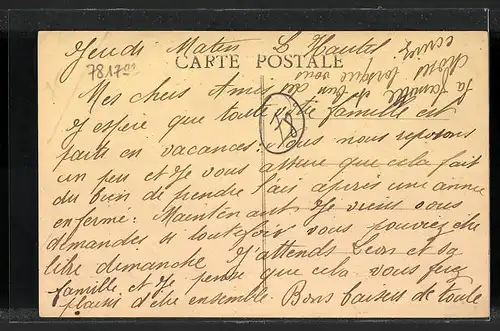 Jeudi Matin
CARTE POSTALE
7817
Mes chers Amis
J espère que toute votre famille est
parti en vacances. Nous nous reposons
un peu et Je vous assure que cela fait
du bien de prendre l'air après une année
enfermé. Maintenant Je viens vous
demander si toutefois vous pouviez être
libre dimanche J'attends Leon et sa
famille et Je pense que cela vous fera
plaisir d'être ensemble. Bons baisers de toute
la famille et bien des
choses lorsque vous
ecrirez
78